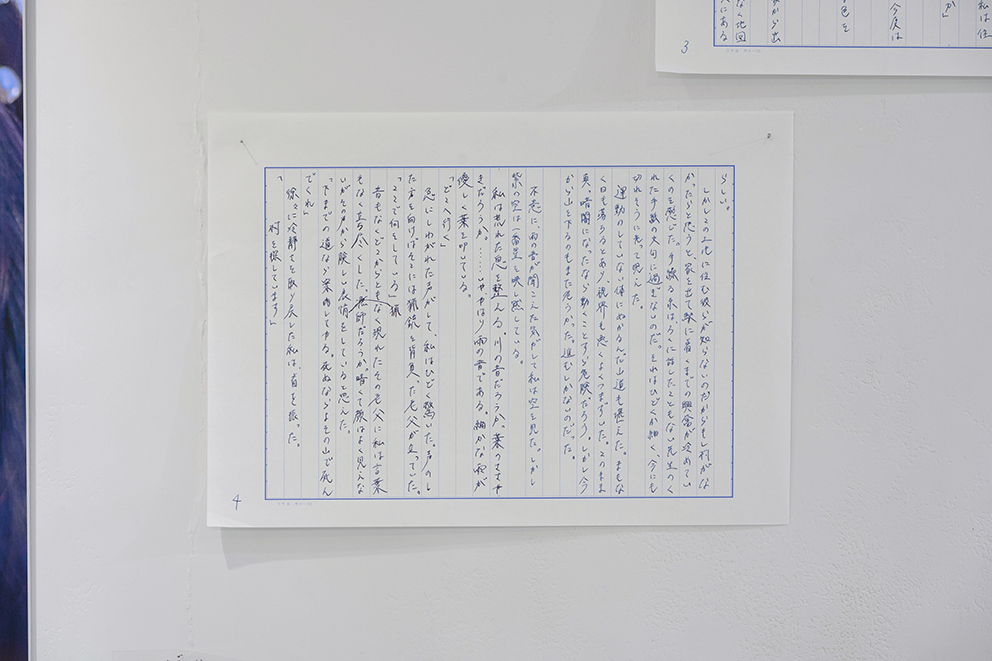 らしい。
しかしこの土地に住む彼らが知らないのだからもし村がな
かったらと思うと家を出て駅に着くまでの興奮が冷めてい
くのを感じた。手繰る糸は、ろくに話したこともない先生のく
れた手紙の大句に過ぎないのだ。それはひどくか細く、今にも
切れそうに光って見えた。
運動のしていない体にぬかるんだ山道も堪えた。まもな
く日も落ちるとあり、視界も悪くよくつまずいた。このまま
真っ暗闇になったなら動くことすら危険だろう。しかし今
から山を下るのもまた危うかった。進むしかないのだった。
不意に、雨の音が聞こえた気がして私は空を見た。しかし
紫の空は一番星を映し黙している。
私は荒れた息を整える。川の音だろうか。葉のささや
きだろうか。……やはり雨の音である。細かな雨が
優しく葉を叩いている。
「どこへ行く」
急にしわがれた声がして、私はひどく驚いた。声のし
た方を向けばそこには猟銃を背負った老父が立っていた。
「ここで何をしている」
猟
音もなくどこからともなく現れたその老父に私は言葉
もなく立ち尽くした。師だろうか、暗くて顔はよく見えな
いがその声から険しい表情をしていると思えた。
「下までの道なら案内してやる。死ぬならよその山で死ん
でくれ」
徐々に冷静さを取り戻した私は、首を振った。
「 村を探しています」
4
3
私は住
か」
今度は
色を
から出
なく地図
人にある